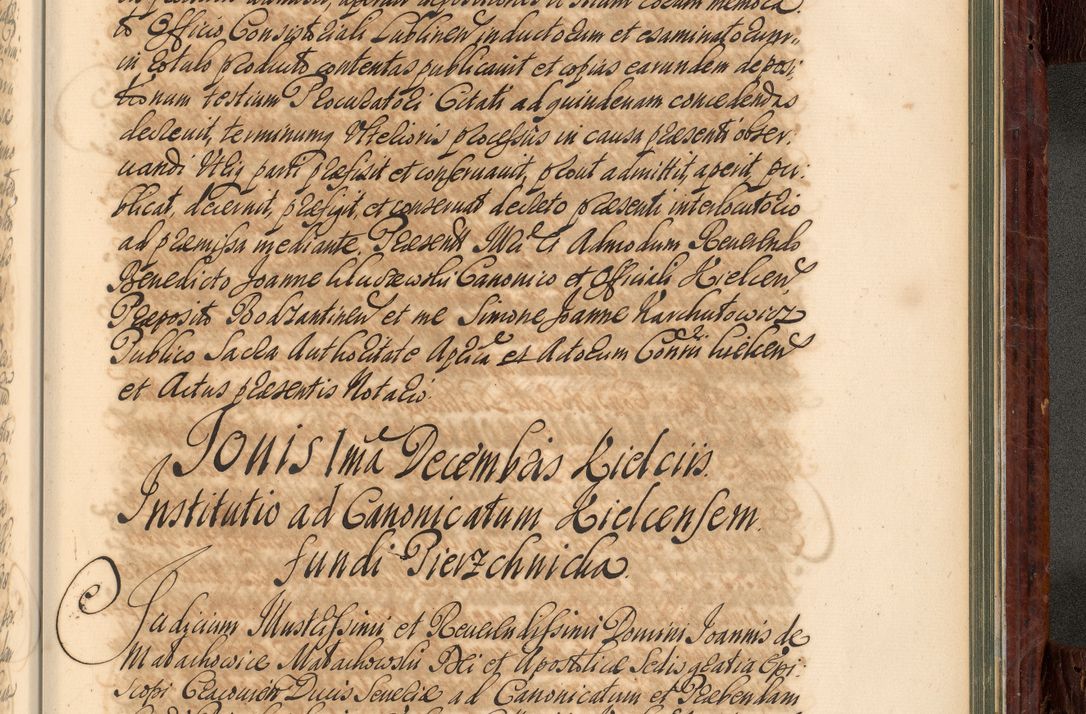 to Officio Consistoriali Lublinen inductorum et examinatorumq.
in rotulo producto contentas publicavit et copias earundem deposi
tionum testium Procuratori Citati ad quindenam concedendas
decrevit, terminumq Ulterioris processus in causa præsenti obser.
vandi Utriq parti præfixit et conservavit, prout admittit, aperit, pu.
blicat, decernit, præfigit, et conservat decreto præsenti interlocutorio
ad præmissa mediante Præsente Illri et Admodum Reverendo
Benedicto Joanne Canonico et Officiali Kielcen
Præposito Bodzantinen et me Simone Joanne Karchutowicz
Publico Sacra Authoritate Aplica et Actorum Conrii Kielcen
et Actus præsentis Notario.
Jovis 1ma Decembris Kielciis.
Institutio ad Canonicatum Kielcensem.
fundi Pierzchnicka.
Ad jcium Illustrissimi et Reverendissimi Domini Joannis de
Małachowice Małachowski Dei et Apostolicæ Sedis gratia Epi.
scopi Cracovien Ducis Severiæ ad Canonicatum et Præbendam